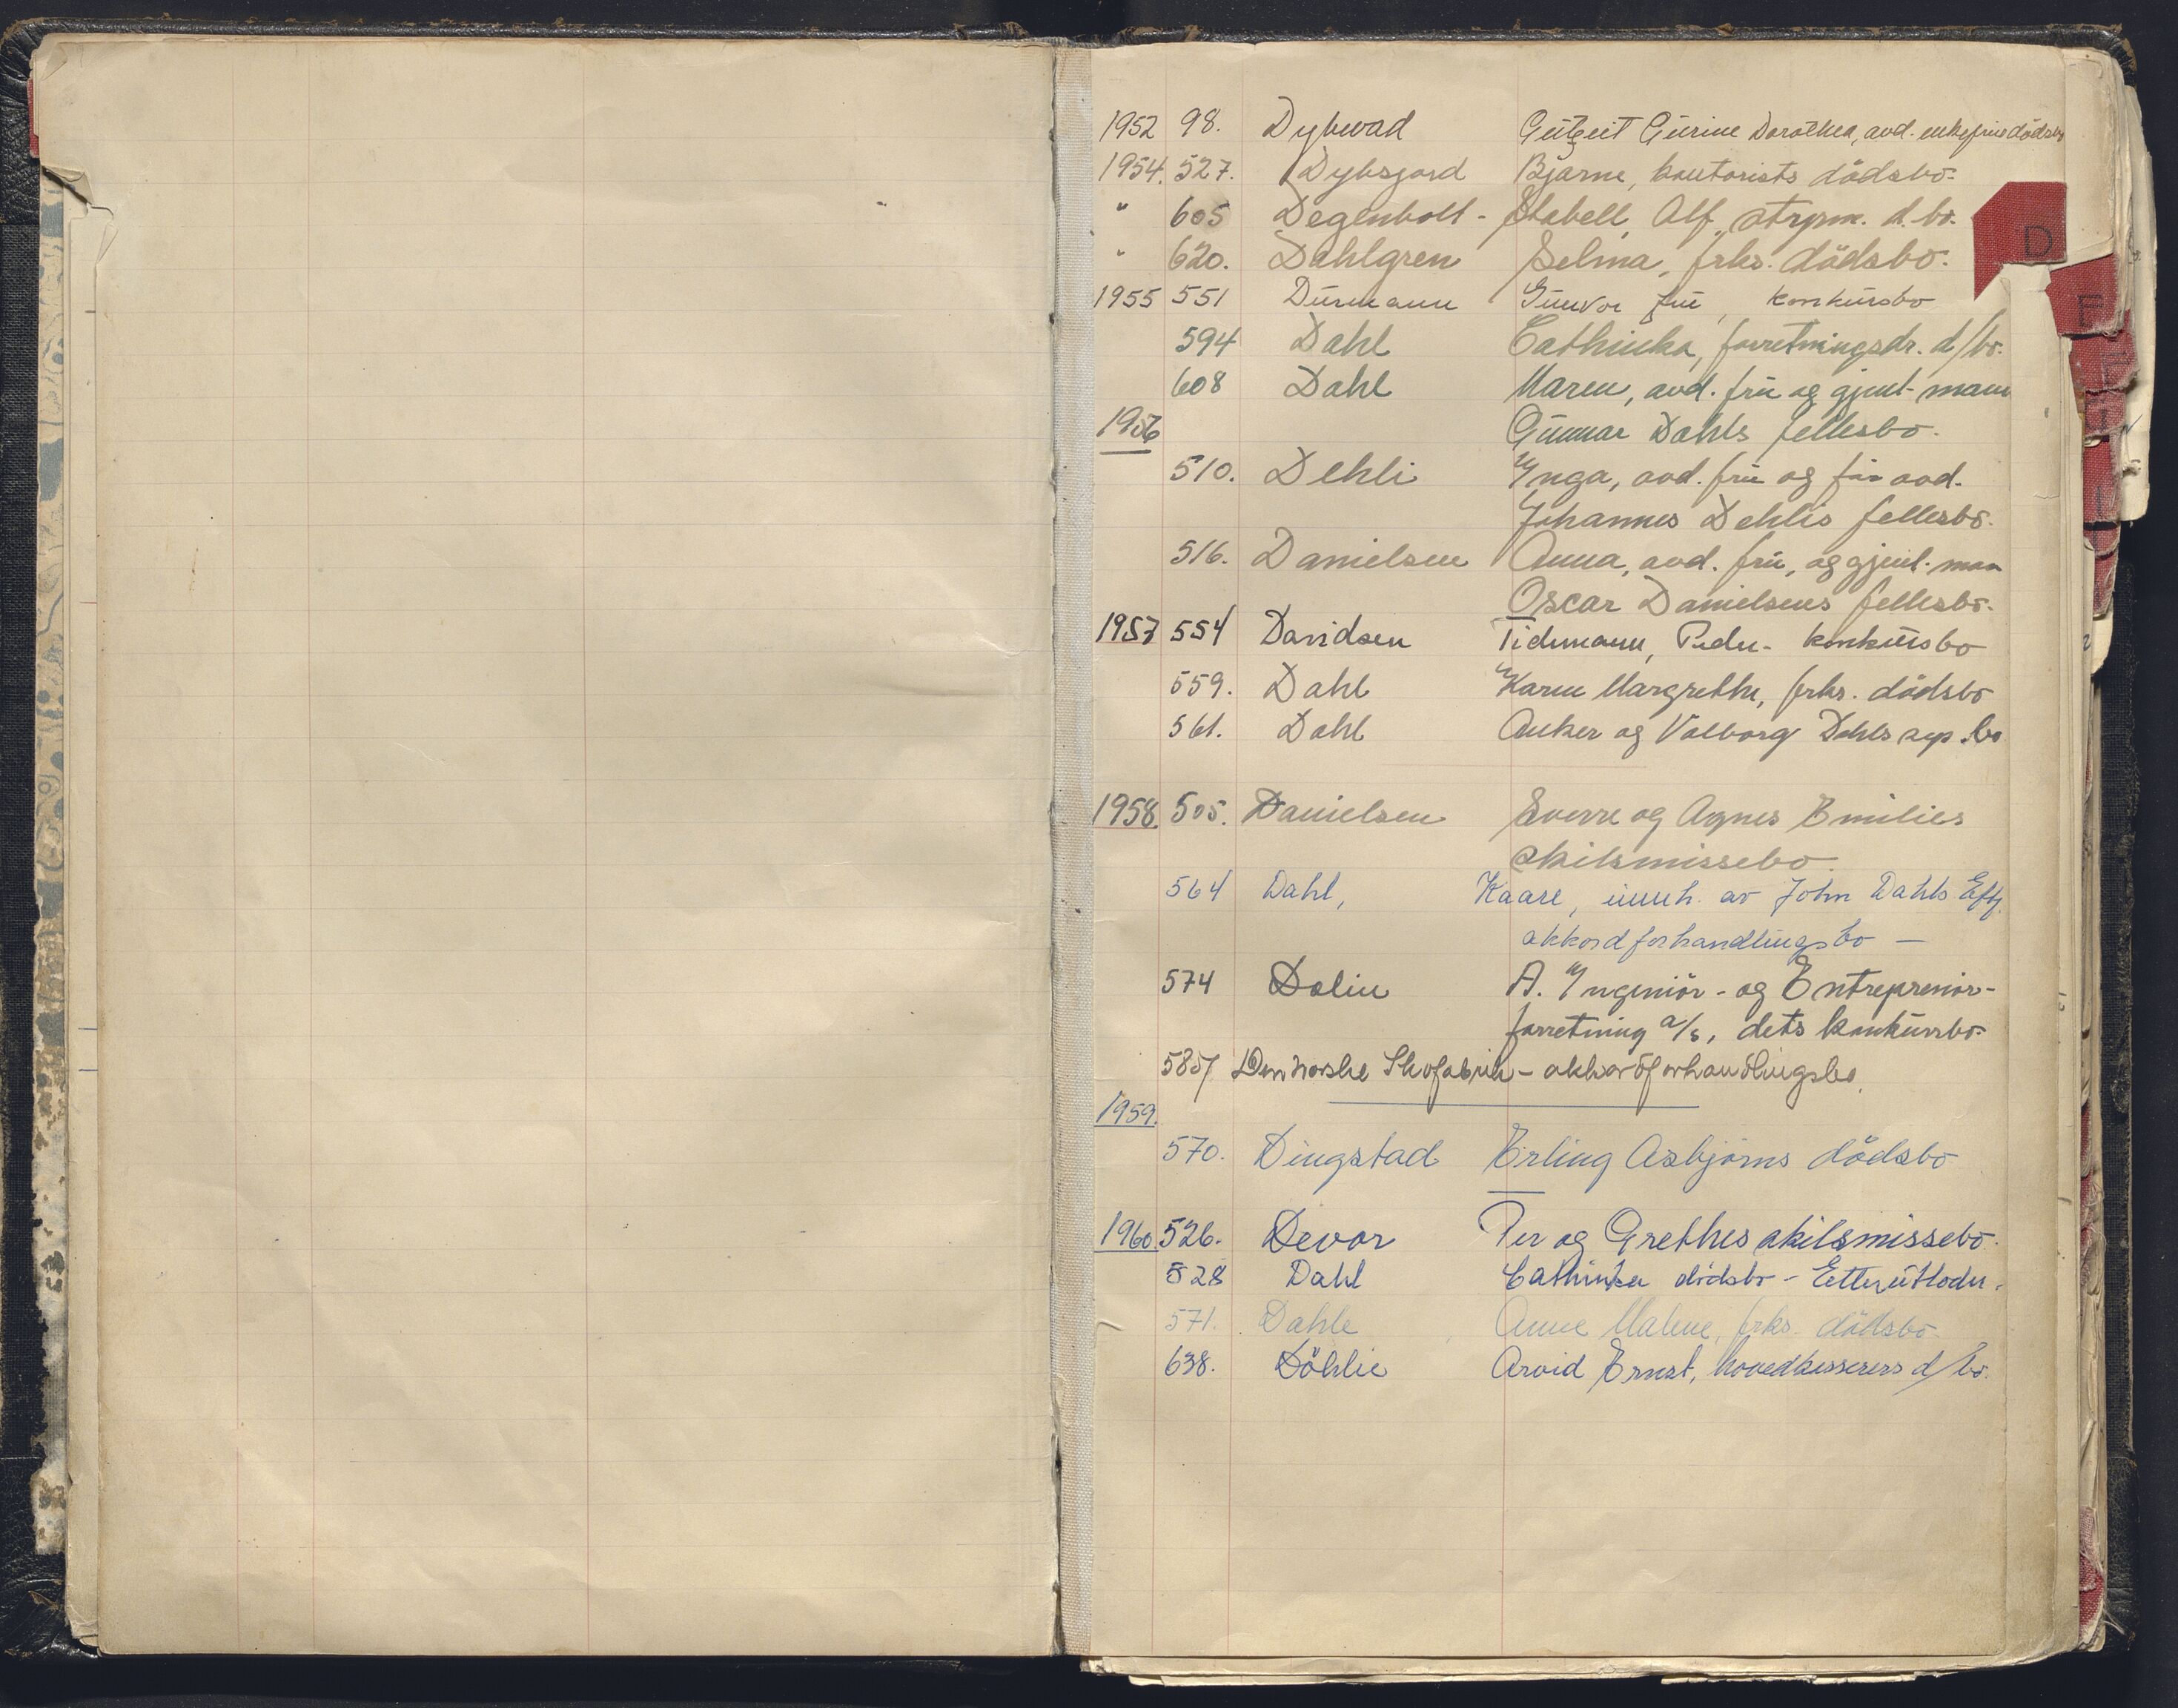 1952 98. Dybwad Gurine Dorothea, avd. enkefrus dödsbo
1954. 527. Dybsjord Bjarne, kontorists dödsbo.
" 605 Degenholt - Stabell, Alf, d. bo.
" 620. Dahlgren Selma, frks. dödsbo.
D
1955 551 Durmann Gunvor fru, konkursbo
594 Dahl Cathinka, forretningsdr. d/bo.
608 Dahl Maren, avd. fru og gjenl. mann
1956 Gunnar Dahls fellesbo.
510. Dehli Ynga, avd. fru og før avd.
Johannes Dehlis fellesbo.
516. Danielsen Anna, avd. fru, og gjenl. man
Oscar Danielsens fellesbo.
1957 554 Davidsen Tidemann, Peder - konkursbo
559. Dahl Karen Margrethe, frks. dödsbo
561. Dahl Anker og Valborg Dahls sep. bo
1958. 505. Danielsen Sverre og Agnes Emilies
skilsmissebo.
564 Dahl, Kaare, innh. av John Dahls Eftf.
akkordforhandlingsbo —
574 Dalin A. Yngeniör - og Entreprenör-
forretning a/s, dets konkursbo.
585/ Den norske Skofabrik - akkordforhandlingsbo.
1959.
570. Dingstad Erling Asbjørns dödsbo
1960. 526. Devor Per og Grethes skilsmissebo.
528 Dahl Cathinka dödsbo - Etterutlodn.
571. Dahle Anne Malene, frks. dödsbo.
638. Döhlie Arvid Ernst, hovedkasserers d/bo.